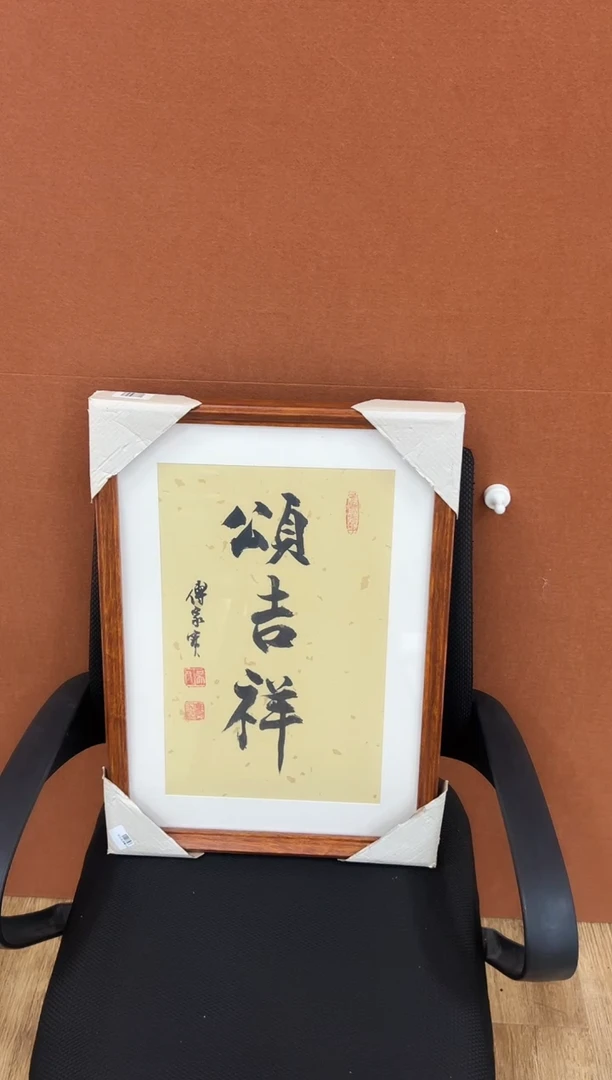 頌吉祥
傅家寶